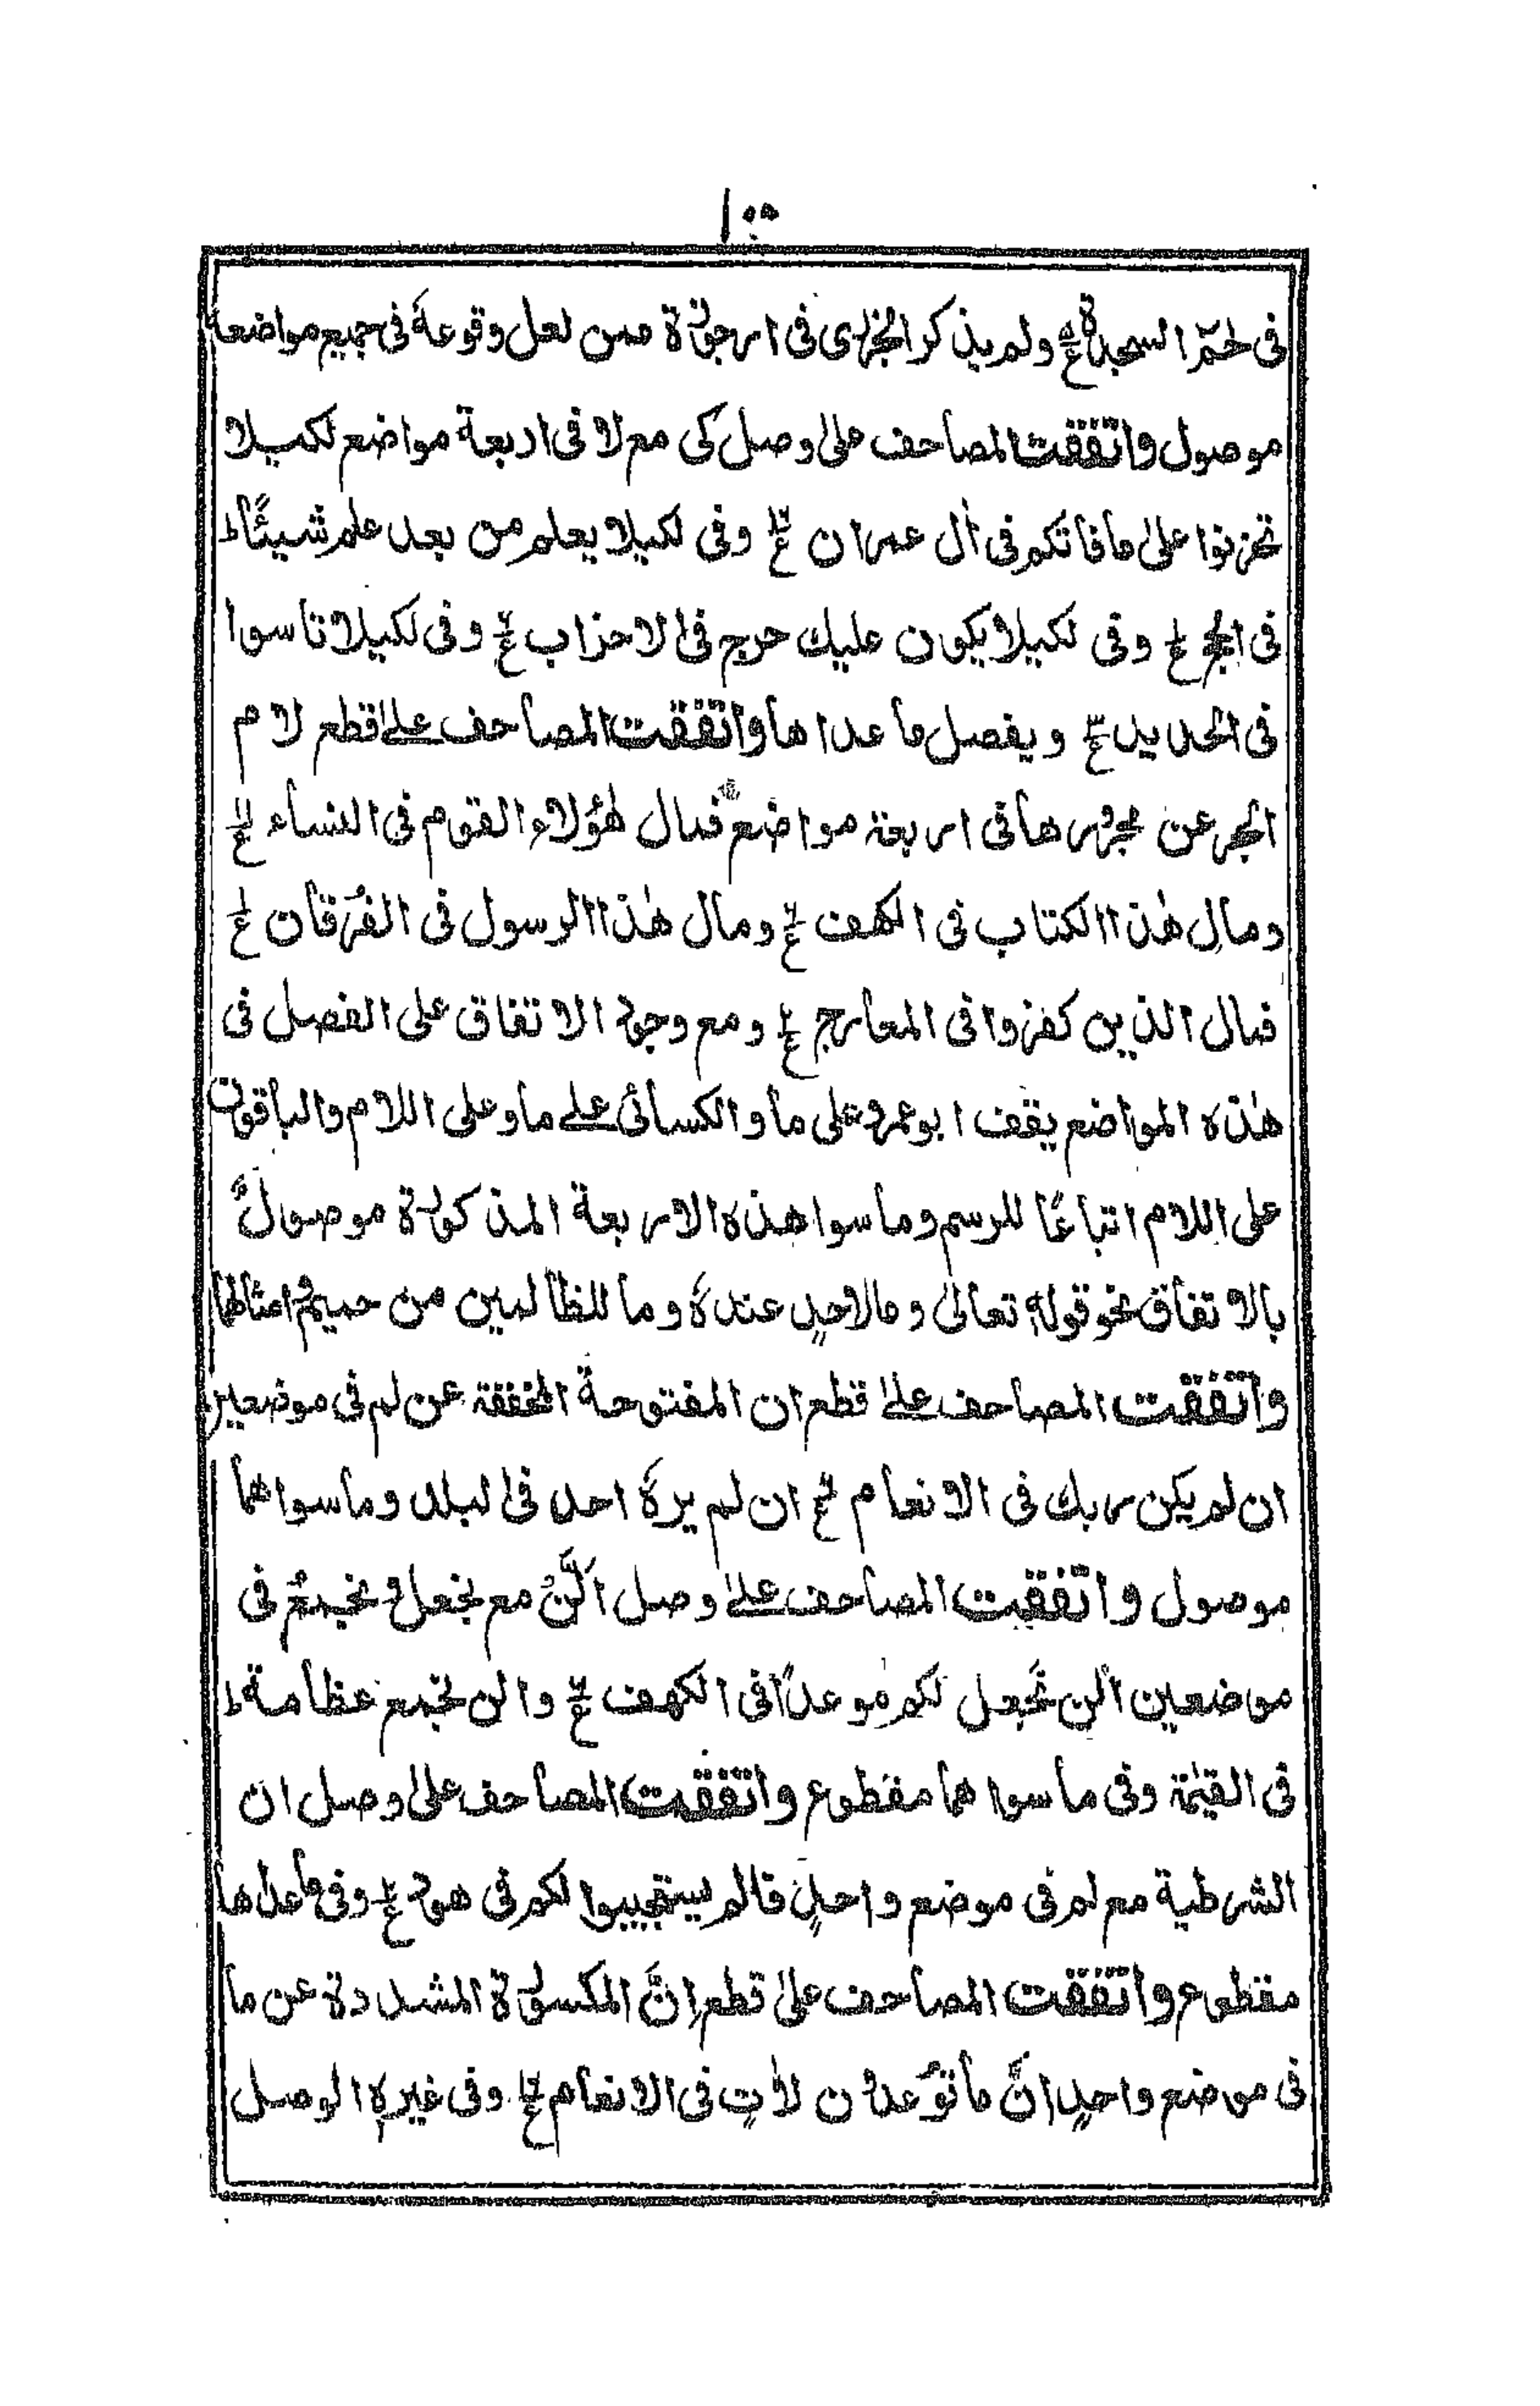 ١٠٥
فى حٰمّ السجدة ع ولم يذكر الجزرى فى ارجوزة ممن لعل وقوعهٗ فى جميع مواضعه
موصول واتفقت المصاحف على وصل كى مع لا فى اربعة مواضع لكيلا
تحزنوا علىٰ ما فاتكم فى اٰل عمران ع وفى لكيلا يعلم من بعد علم شيئًا ط
فى الحج ع وفى لكيلا يكون عليك حرج فى الاحزاب ع وفى لكيلا تاسوا
فى الحديد ع ويفصل ما عداها واتفقت المصاحف علىٰ قطع لام
الجر عن مجرورها فى اربعة مواضع فمال هٰؤلاء القوم فى النساء ع
ومالِ هٰذا الكتاب فى الكهف ع ومال هٰذا الرسول فى الفرقان ع
فمال الذين كفروا فى المعارج ع ومع وجود الاتفاق على الفصل فى
هٰذه المواضع يقف ابو عمرو على ما والكسائى علے ما وعلى اللام والباقون
على اللام اتباعًا للرسم وما سوا هذه الاربعة المذكورة موصولٌ
بالاتفاق نحو قولهٖ تعالىٰ وما لاحدٍ عندهٗ وما للظالمين من حميم وامثالها
واتفقت المصاحف علىٰ قطع ان المفتوحة المخففة عن لم فى موضعين
ان لم يكن ربك فى الانعام ع ان لم يرهٗ احد فى البلد وما سواهما
موصول واتفقت المصاحف علىٰ وصل اَلَّنْ مع نجعل و نجمع فى
موضعين الّن نَّجعل لكم موعدًا فى الكهف ع والن نجمع عظامه ط
فى القيٰمة وفى ما سواهما مقطوع واتفقت المصاحف علىٰ وصل ان
الشرطية مع لم فى موضع واحدٍ فالم يستجيبوا لكم فى هود ع وفى ما عداها
مقطوع واتفقت المصاحف علىٰ قطع اِنَّ المكسورة المشددة عن ما
فى موضع واحدٍ اِنَّ ما توعدون لاٰتٍ فى الانعام ع وفى غيرهٖ الوصل